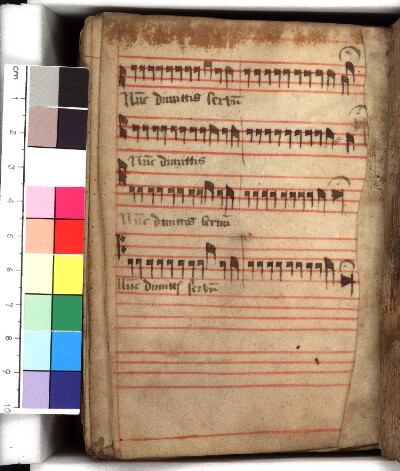 Nūc dimittis servū
Nūc dimittis
Nūc dimittis servū
Nūc dimittis servū
cm
1
2
3
4
5
6
7
8
9
10